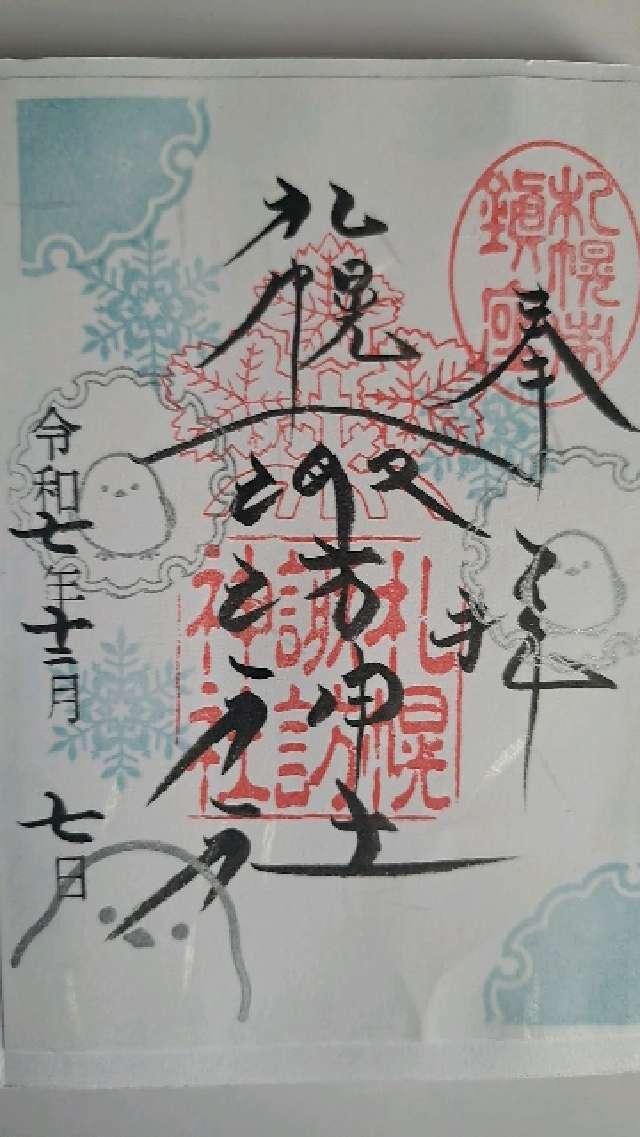 奉拝
札幌市
鎮宮
札幌
諏訪神社
札幌
諏訪
神社
令和七年十二月七日